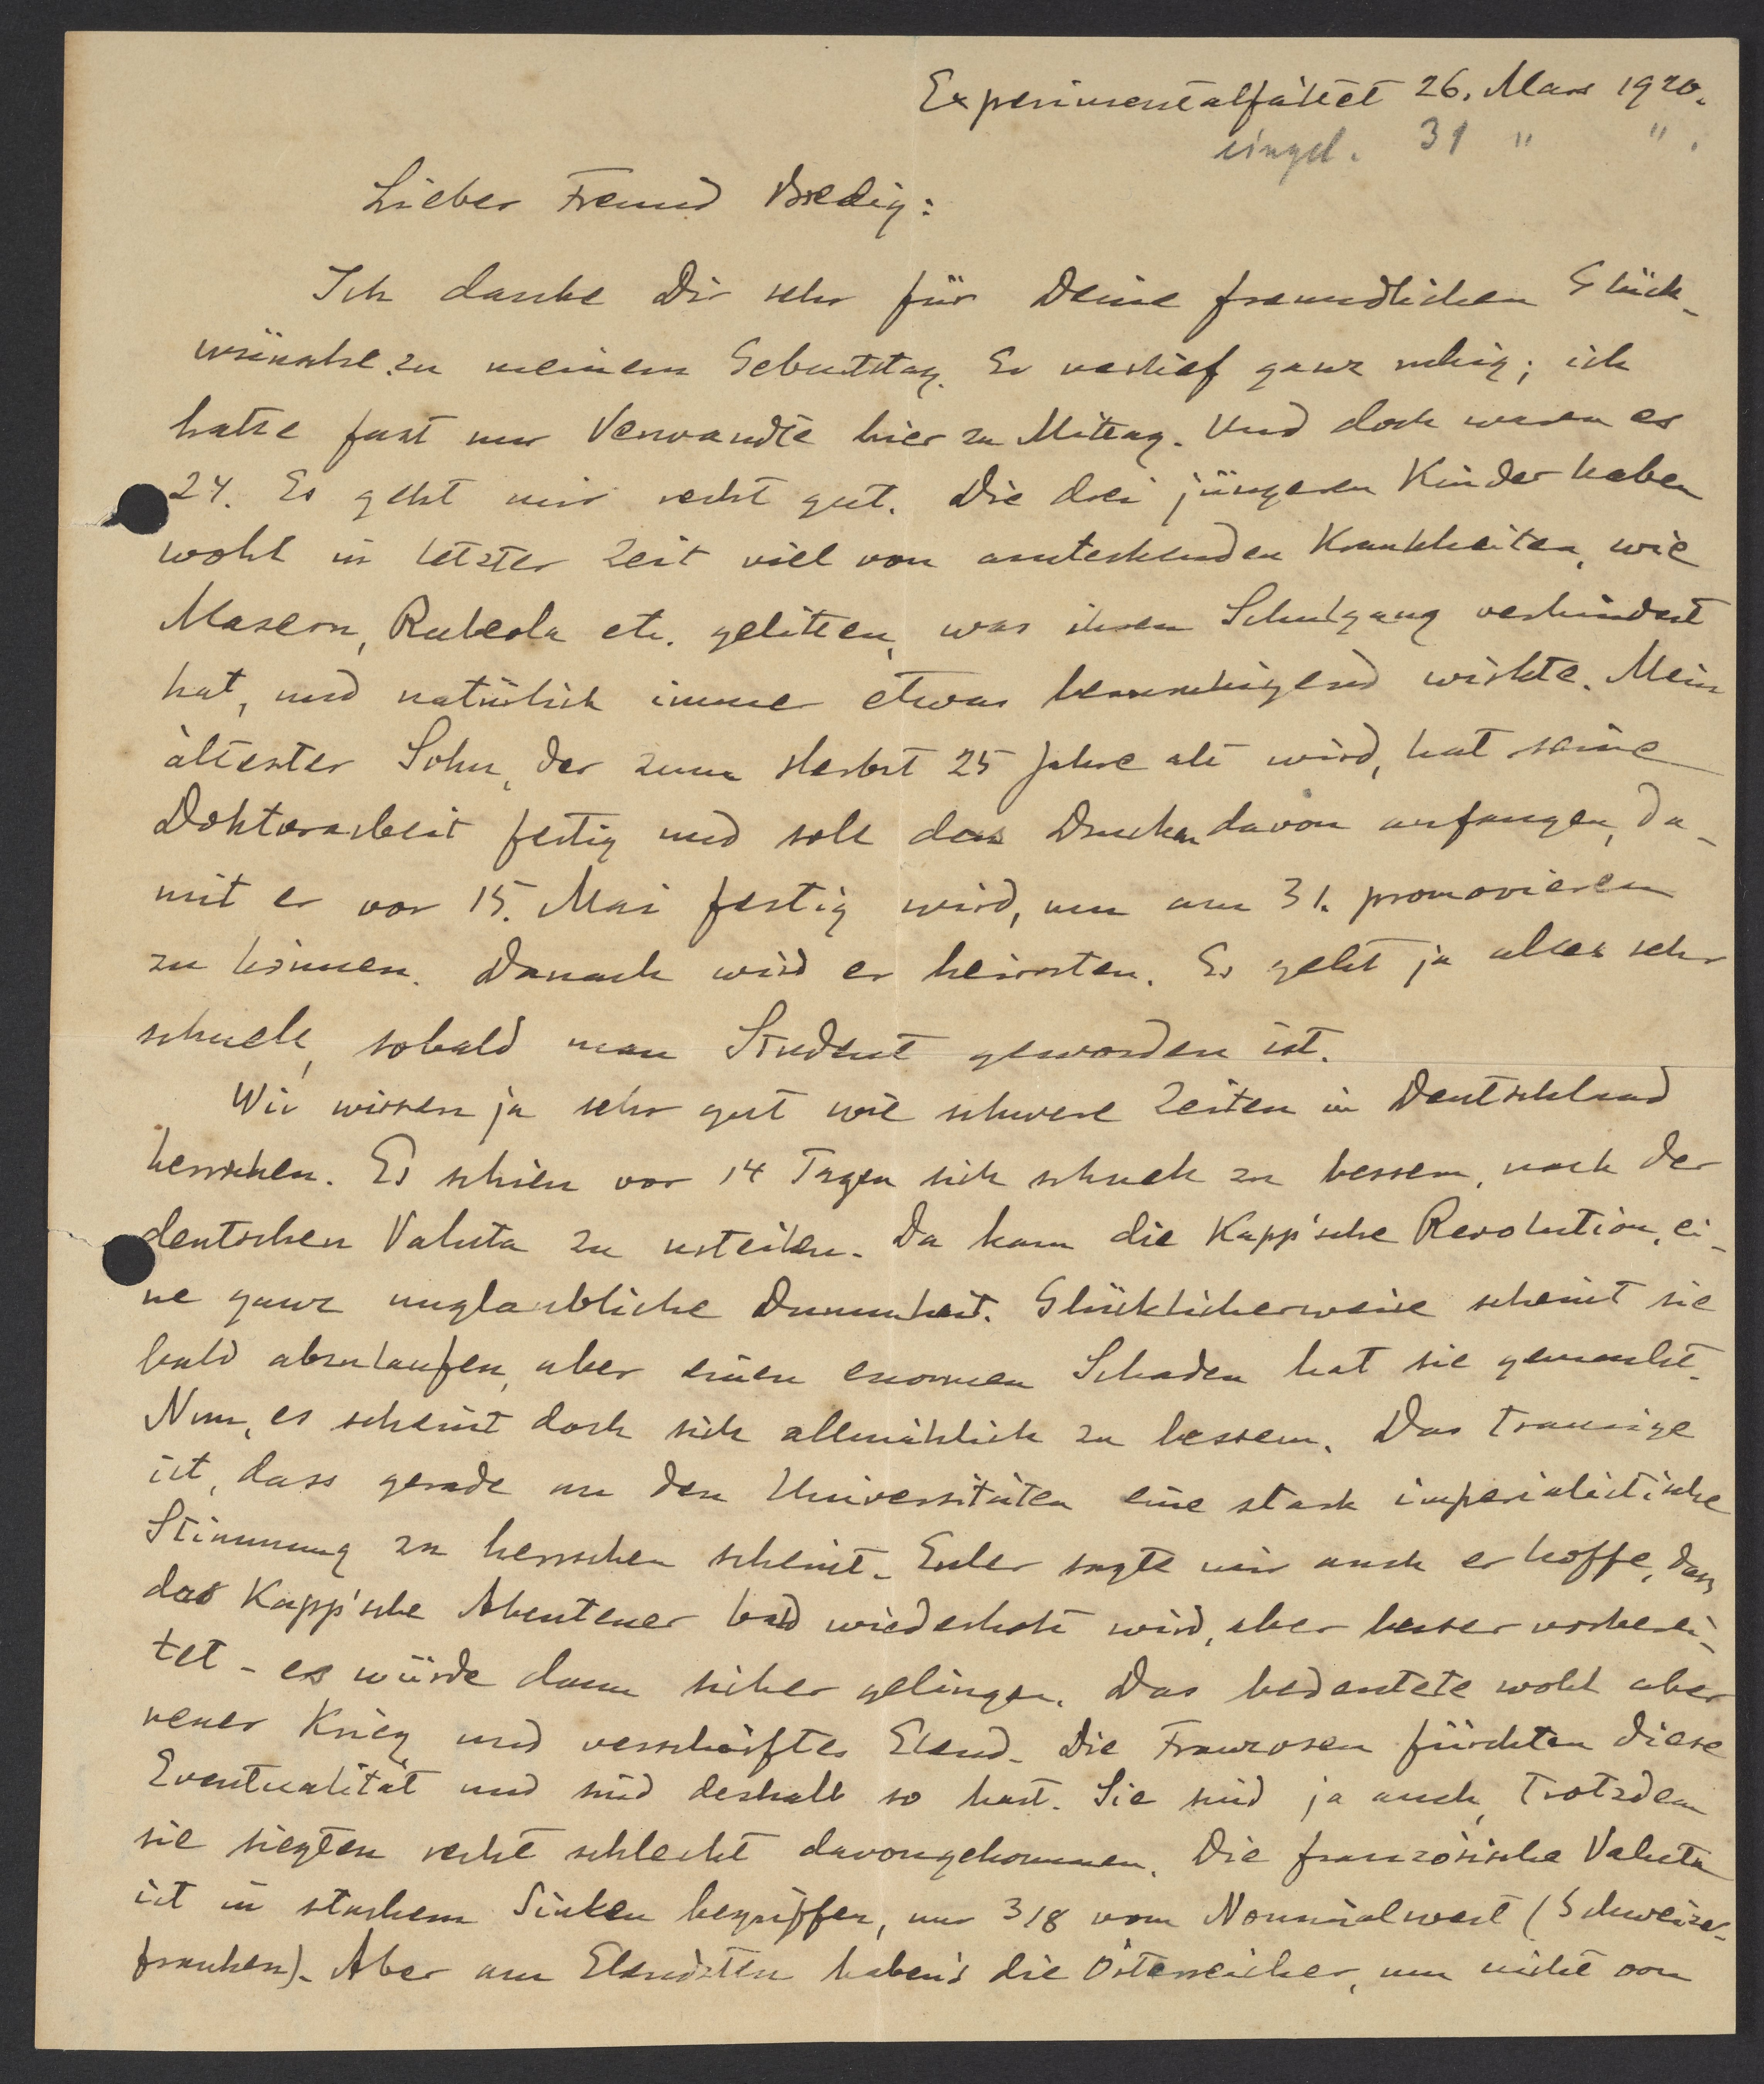 Experimentalfältet 26. Mars 1920.
eingel. 31 " " .
Lieber Freund Bredig:
Ich danke Dir sehr für Deine freundlichen Glück-
wünsche zu meinem Geburtstag. Er verlief ganz ruhig; ich
hatte fast nur Verwandte hier zu Mittag. Und doch waren es
24. Es geht mir recht gut. Die drei jüngeren Kinder haben
wohl in letzter Zeit viel von ansteckenden Krankheiten, wie
Masern, Rubeola etc. gelitten, was ihren Schulgang verhindert
hat, und natürlich immer etwas beunruhigend wirkte. Mein
ältester Sohn, der zum Herbst 25 Jahre alt wird, hat seine
Doktorarbeit fertig und soll das Drucken davon anfangen, da-
mit er vor 15. Mai fertig wird, um am 31. promovieren
zu können. Danach wird er heiraten. Es geht ja alles sehr
schnell, sobald man Student geworden ist.
Wir wissen ja sehr gut wie schwere Zeiten in Deutschland
herrschen. Es schien vor 14 Tagen sich schnell zu bessern, nach der
deutschen Valuta zu urteilen. Da kam die Kapp'sche Revolution, ei-
ne ganz unglaubliche Dummheit. Glücklicherweise scheint sie
bald abzulaufen, aber einen enormen Schaden hat sie gemacht.
Nun, es scheint doch sich allmählich zu bessern. Das Traurige
ist, dass gerade an den Universitäten eine stark imperialistische
Stimmung zu herrschen scheint. Euler sagte mir auch er hoffe, dass
das Kapp'sche Abenteuer bald wiederholt wird, aber besser vorberei-
tet - es würde dann sicher gelingen. Das bedeutete wohl aber
neuer Krieg und verschärftes Elend. Die Franzosen fürchten diese
Eventualität und sind deshalb so hart. Sie sind ja auch, trotzdem
sie siegten recht schlecht davongekommen. Die französische Valuta
ist in starkem Sinken begriffen, nur 3/8 vom Nominalwert (Schweizer-
franken). Aber am Elendsten haben's die Österreicher, um nicht von